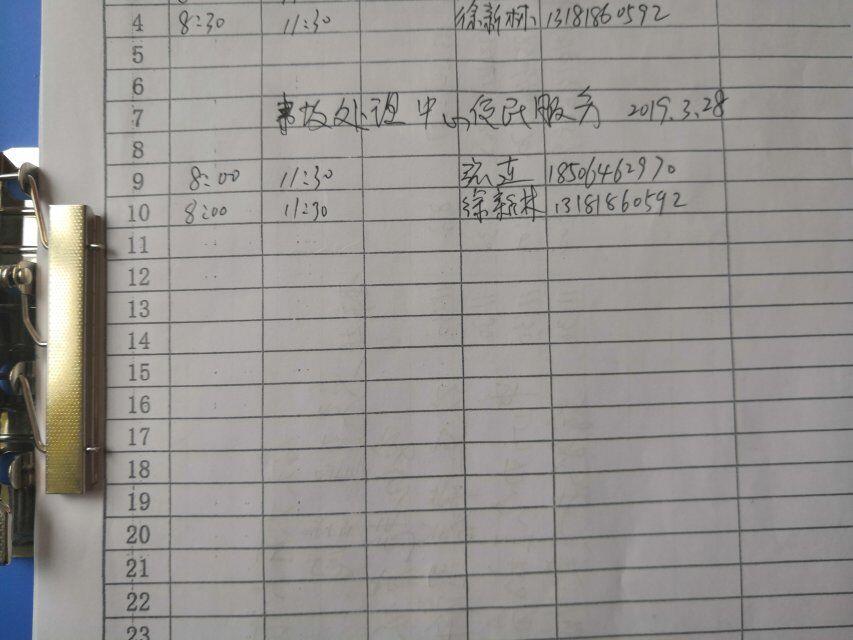 4 8:30 11:30 徐新林 13181860592
5
6
7 事故处理中心便民服务 2019.3.28
8
9 8:00 11:30 18506462970
10 8:00 11:30 徐新林 13181860592
11
12
13
14
15
16
17
18
19
20
21
22
23